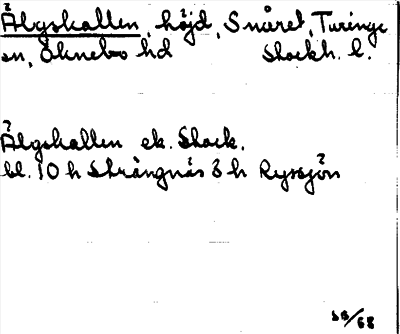 Älgskallen, höjd, Snåret, Turinge
sn, Öknebo hd Stockh. l.
Älgskallen ek. Stock.
bl. 10 h Strängnäs 3 h Ryssjön